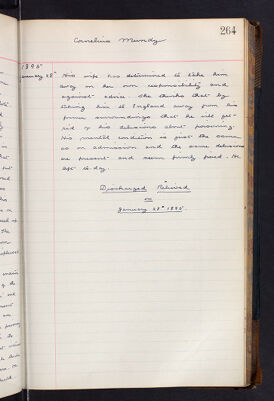 264
Cornelius Mundy
1895
January 28th His wife has determined to take him
away on her own responsibility and
against advice. She thinks that by
taking him to England away from his
former surroundings that he will get
rid of his delusions about poisoning.
His mental condition is just the same
as on admission and the same delusions
are present and seem firmly fixed. He
left to-day.
Discharged "Relieved"
on
January 28th 1895